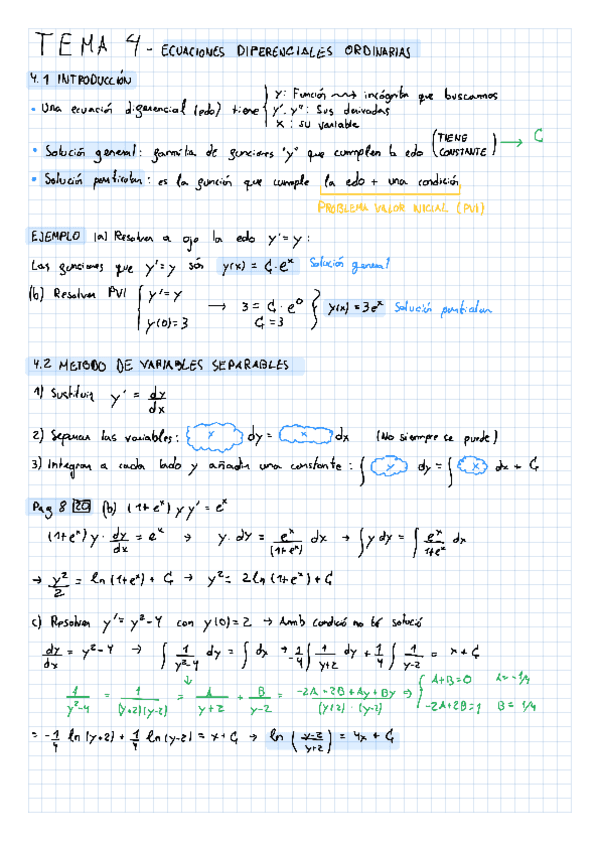 TEMA 4 - ECUACIONES DIFERENCIALES ORDINARIAS
4.1 INTRODUCCIÓN
• Una ecuación diferencial (edo) tiene { y: Función ⟿ incógnita que buscamos
y', y'': Sus derivadas
x: su variable
• Solución general: familia de funciones "y" que cumplen la edo (TIENE CONSTANTE) → C
• Solución particular: es la función que cumple la edo + una condición
PROBLEMA VALOR INICIAL (PVI)
EJEMPLO (a) Resolver a ojo la edo y' = y:
Las funciones que y' = y són y(x) = C · e^x Solución general
(b) Resolver PVI { y' = y → 3 = C · e^0 } y(x) = 3e^x Solución particular
y(0) = 3 C = 3
4.2 METODO DE VARIABLES SEPARABLES
1) Sustituir y' = dy/dx
2) Separar las variables: y dy = x dx (No siempre se puede)
3) Integrar a cada lado y añadir una constante: ∫ y dy = ∫ x dx + C
Pag 8 20 (b) (1+e^x) y y' = e^x
(1+e^x) y · dy/dx = e^x → y · dy = e^x/(1+e^x) dx → ∫ y dy = ∫ e^x/1+e^x dx
→ y²/2 = ln(1+e^x) + C → y² = 2ln(1+e^x) + C
c) Resolver y' = y²-4 con y(0) = 2 → Amb condició no té solució
dy/dx = y²-4 → ∫ 1/y²-4 dy = ∫ dx → 1/-4 ∫ 1/y+2 dy + 1/4 ∫ 1/y-2 = x + C
↓
1/y²-4 = 1/(y+2)(y-2) = A/y+2 + B/y-2 = -2A+2B+Ay+By/(y+2)·(y-2) ⇒ { A+B=0 A=-1/4
-2A+2B=1 B=1/4
= -1/4 ln(y+2) + 1/4 ln(y-2) = x + C → ln(y-2/y+2) = 4x + C